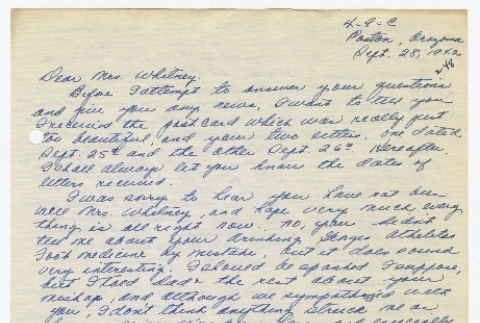 4-9-C
Poston, Arizona
Sept. 28, 1942
248
Dear Mrs. Whitney.
Before I attempt to answer your questions
and give you any news, I want to tell you
I received the postcard which was really just
too beautiful, and your two letters. One dated
Sept. 25th and the other Sept. 26th. Hereafter
I shall always let you know the dates of
letters received.
I was sorry to hear you have not been
well Mrs. Whitney, and hope very much every
thing is all right now. No, you didn't
tell me about your drinking athletes
Foot medicine by mistake, but it does sound
very interesting. I should be spanked I suppose,
but I told Dad the rest about your
mishap, and although we sympathized with
you, I don't think anything struck me